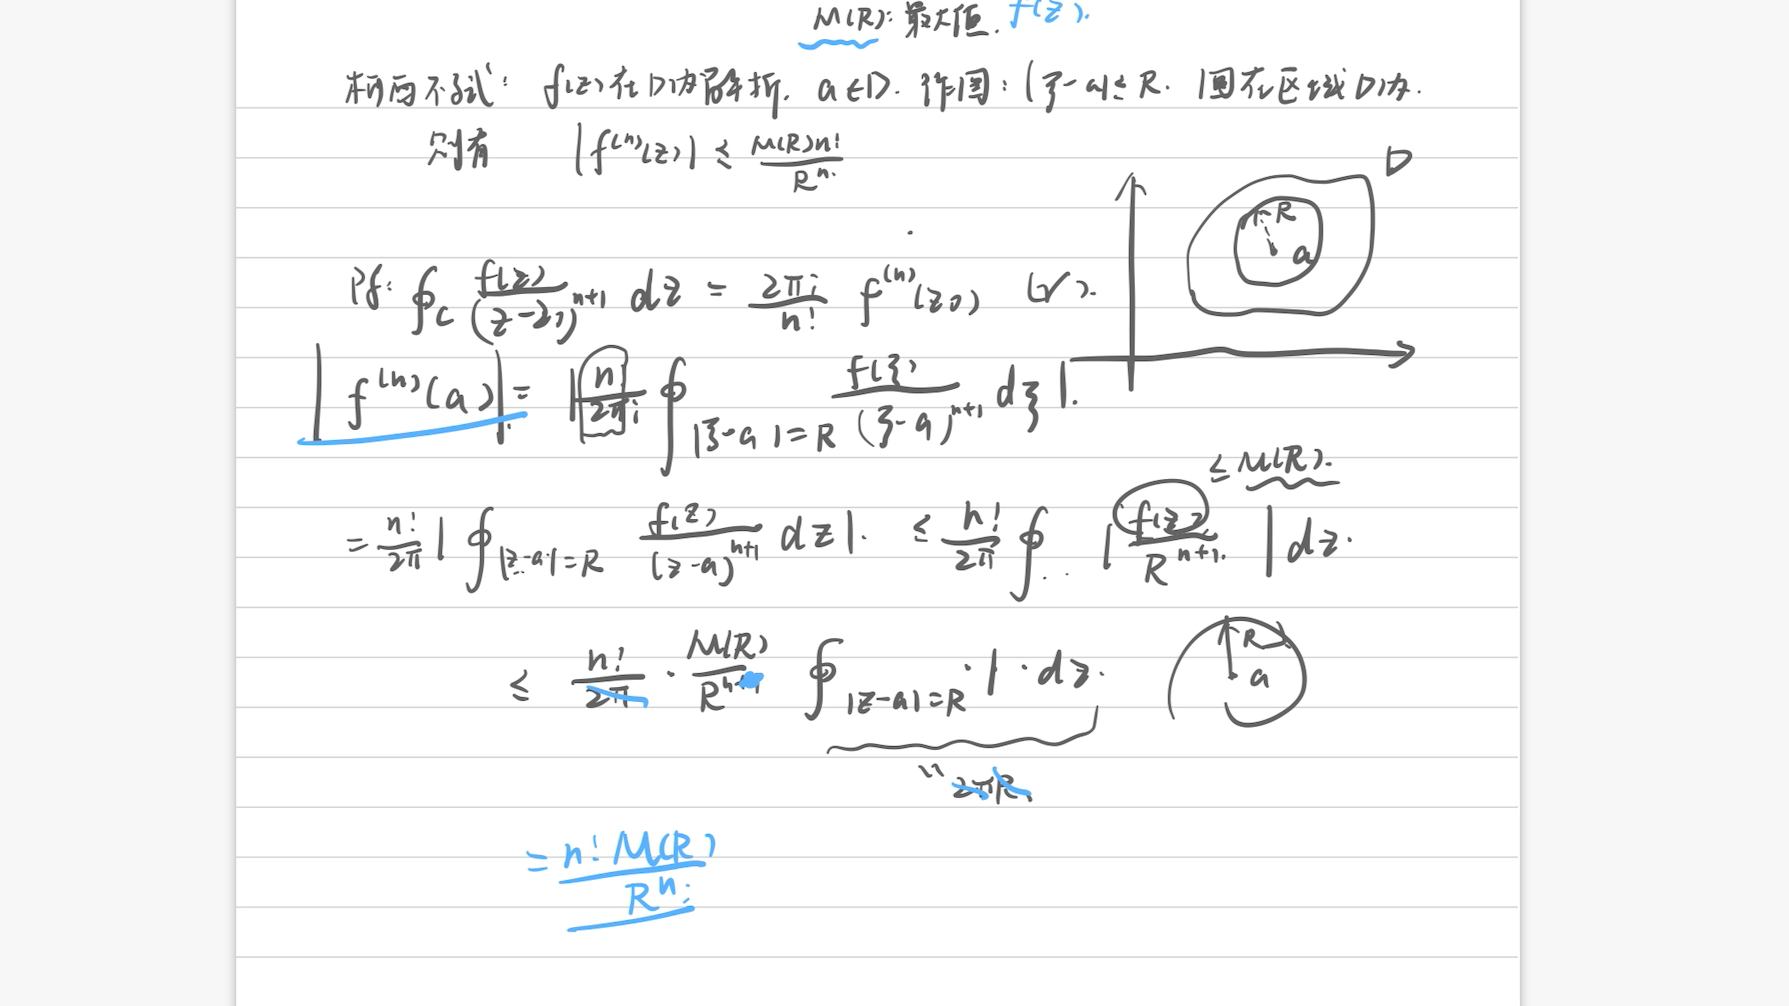 M(R): 最大值. f(z).
柯西不等式: f(z)在D内解析. a∈D. 作圆: |ξ-a|≤R. 圆在区域D内.
则有 |f^(n)(z)| ≤ M(R)n! / R^n.
D
R
a
Pf: ∮_C f(z)/(z-z0)^(n+1) dz = 2πi/n! f^(n)(z0) (√).
|f^(n)(a)| = |n!/2πi ∮_|ξ-a|=R f(ξ)/(ξ-a)^(n+1) dξ|.
≤ M(R).
= n!/2π |∮_|z-a|=R f(z)/(z-a)^(n+1) dz|. ≤ n!/2π ∮.. |f(z)/R^(n+1)| dz.
≤ n!/2π · M(R)/R^(n+1) ∮_|z-a|=R ·1·dz.
R
a
" 2πR.
= n! M(R) / R^n.